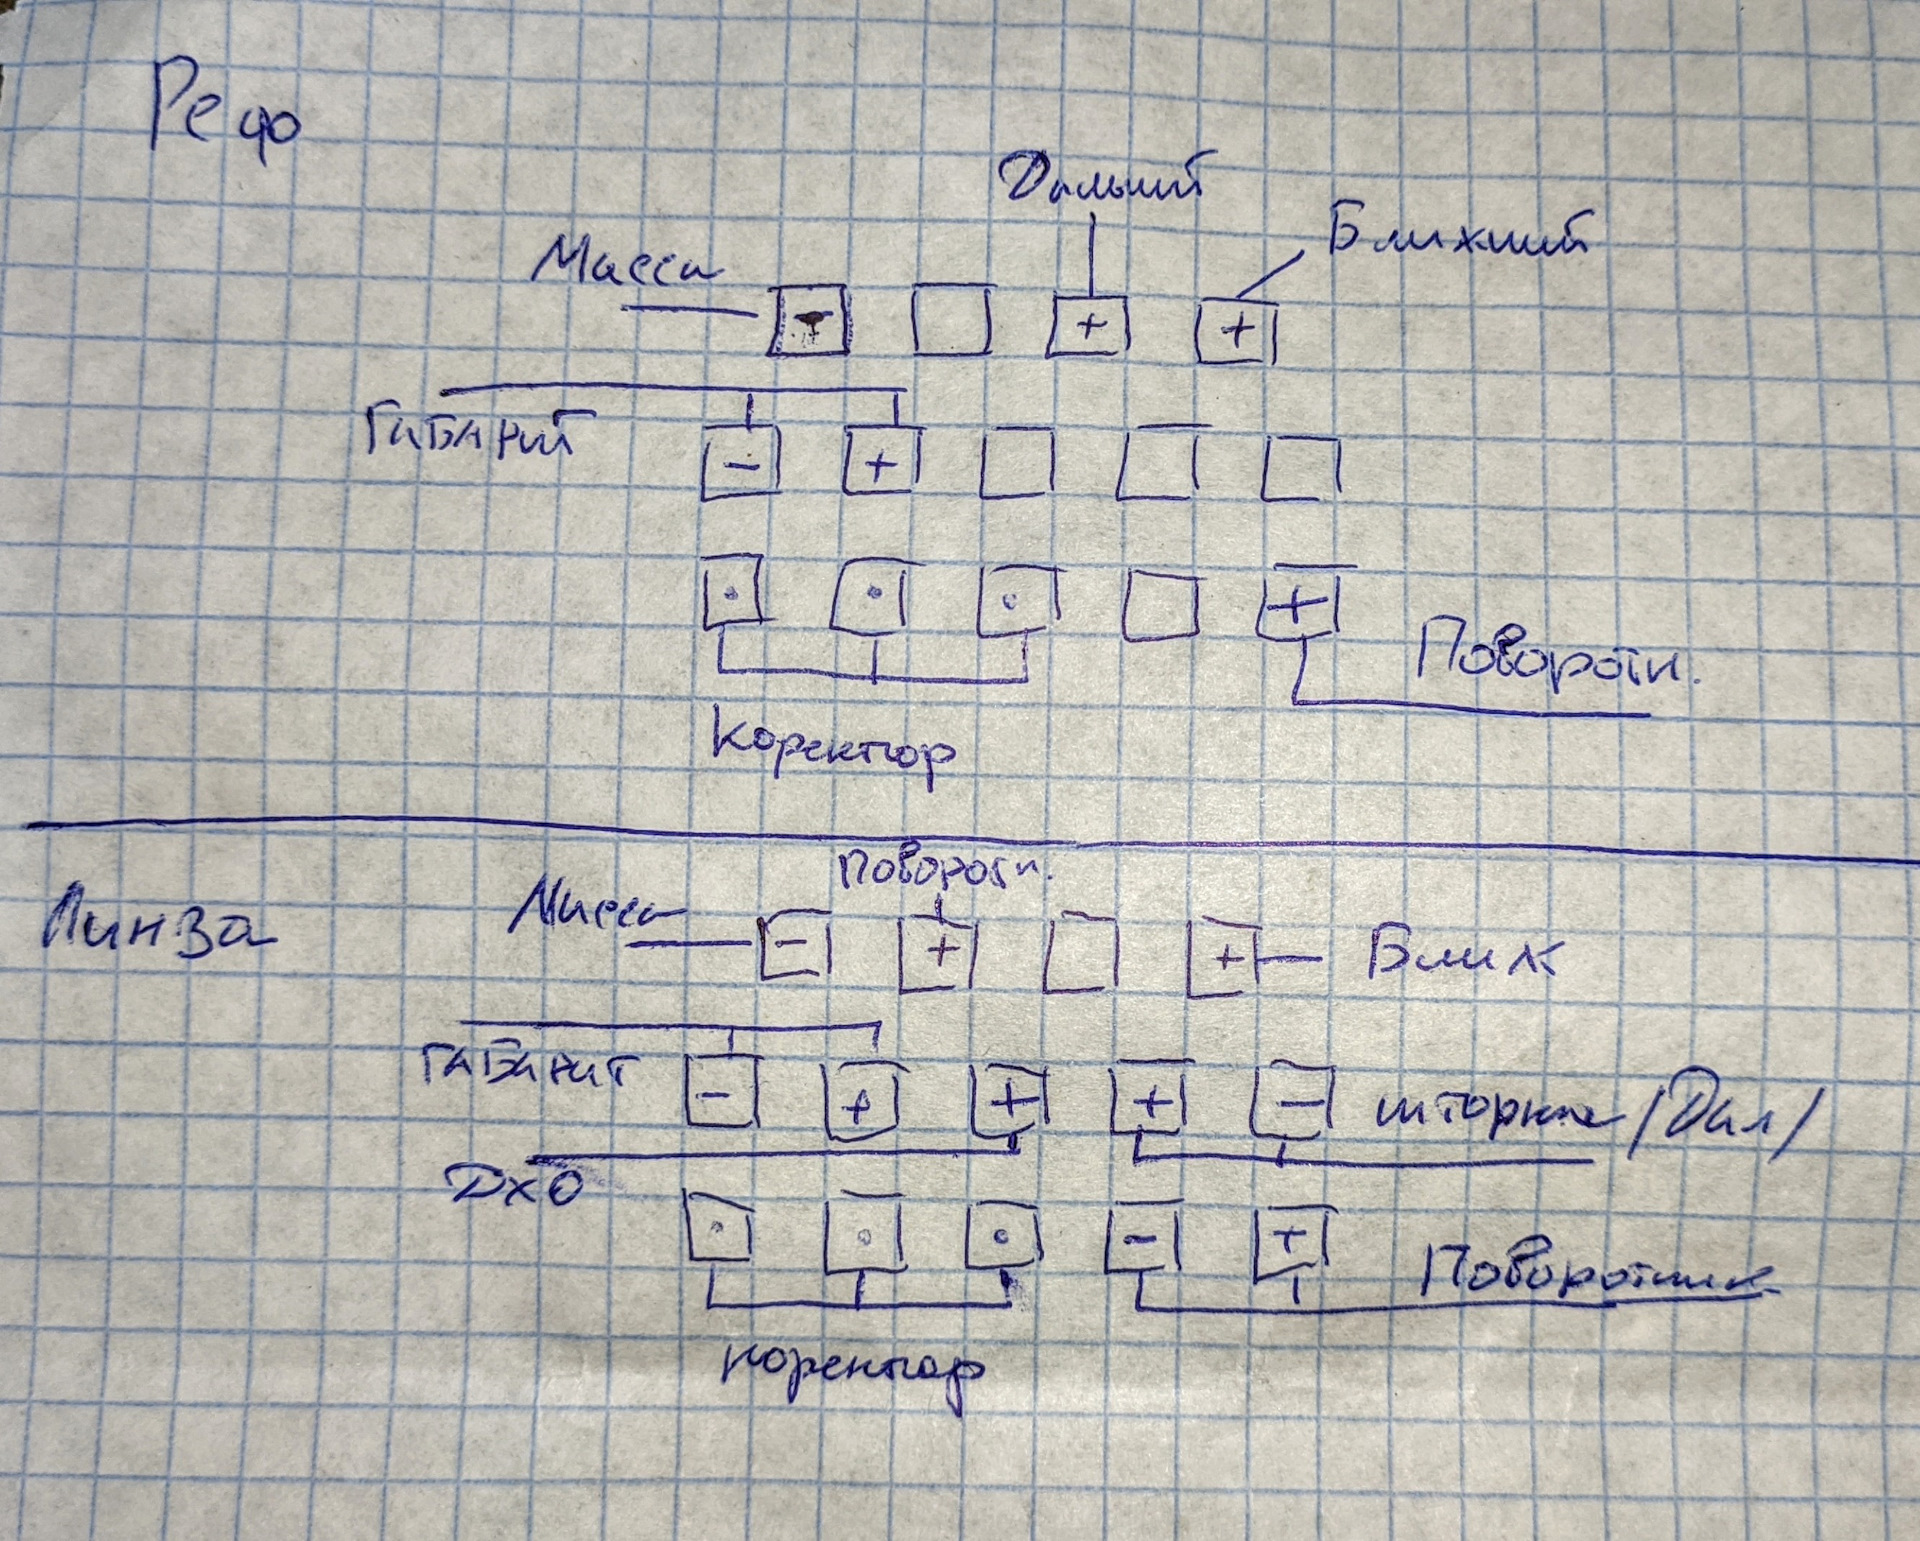 Рефо
Дальний
Ближний
Масса
-
+
+
Габарит
-
+
+
Поворотн.
Коректор
Поворотн.
Линза
Масса
-
+
+
Ближ
Габарит
-
+
+
+
-
шторка /Дал/
ДХО
-
+
Поворотник
коректор